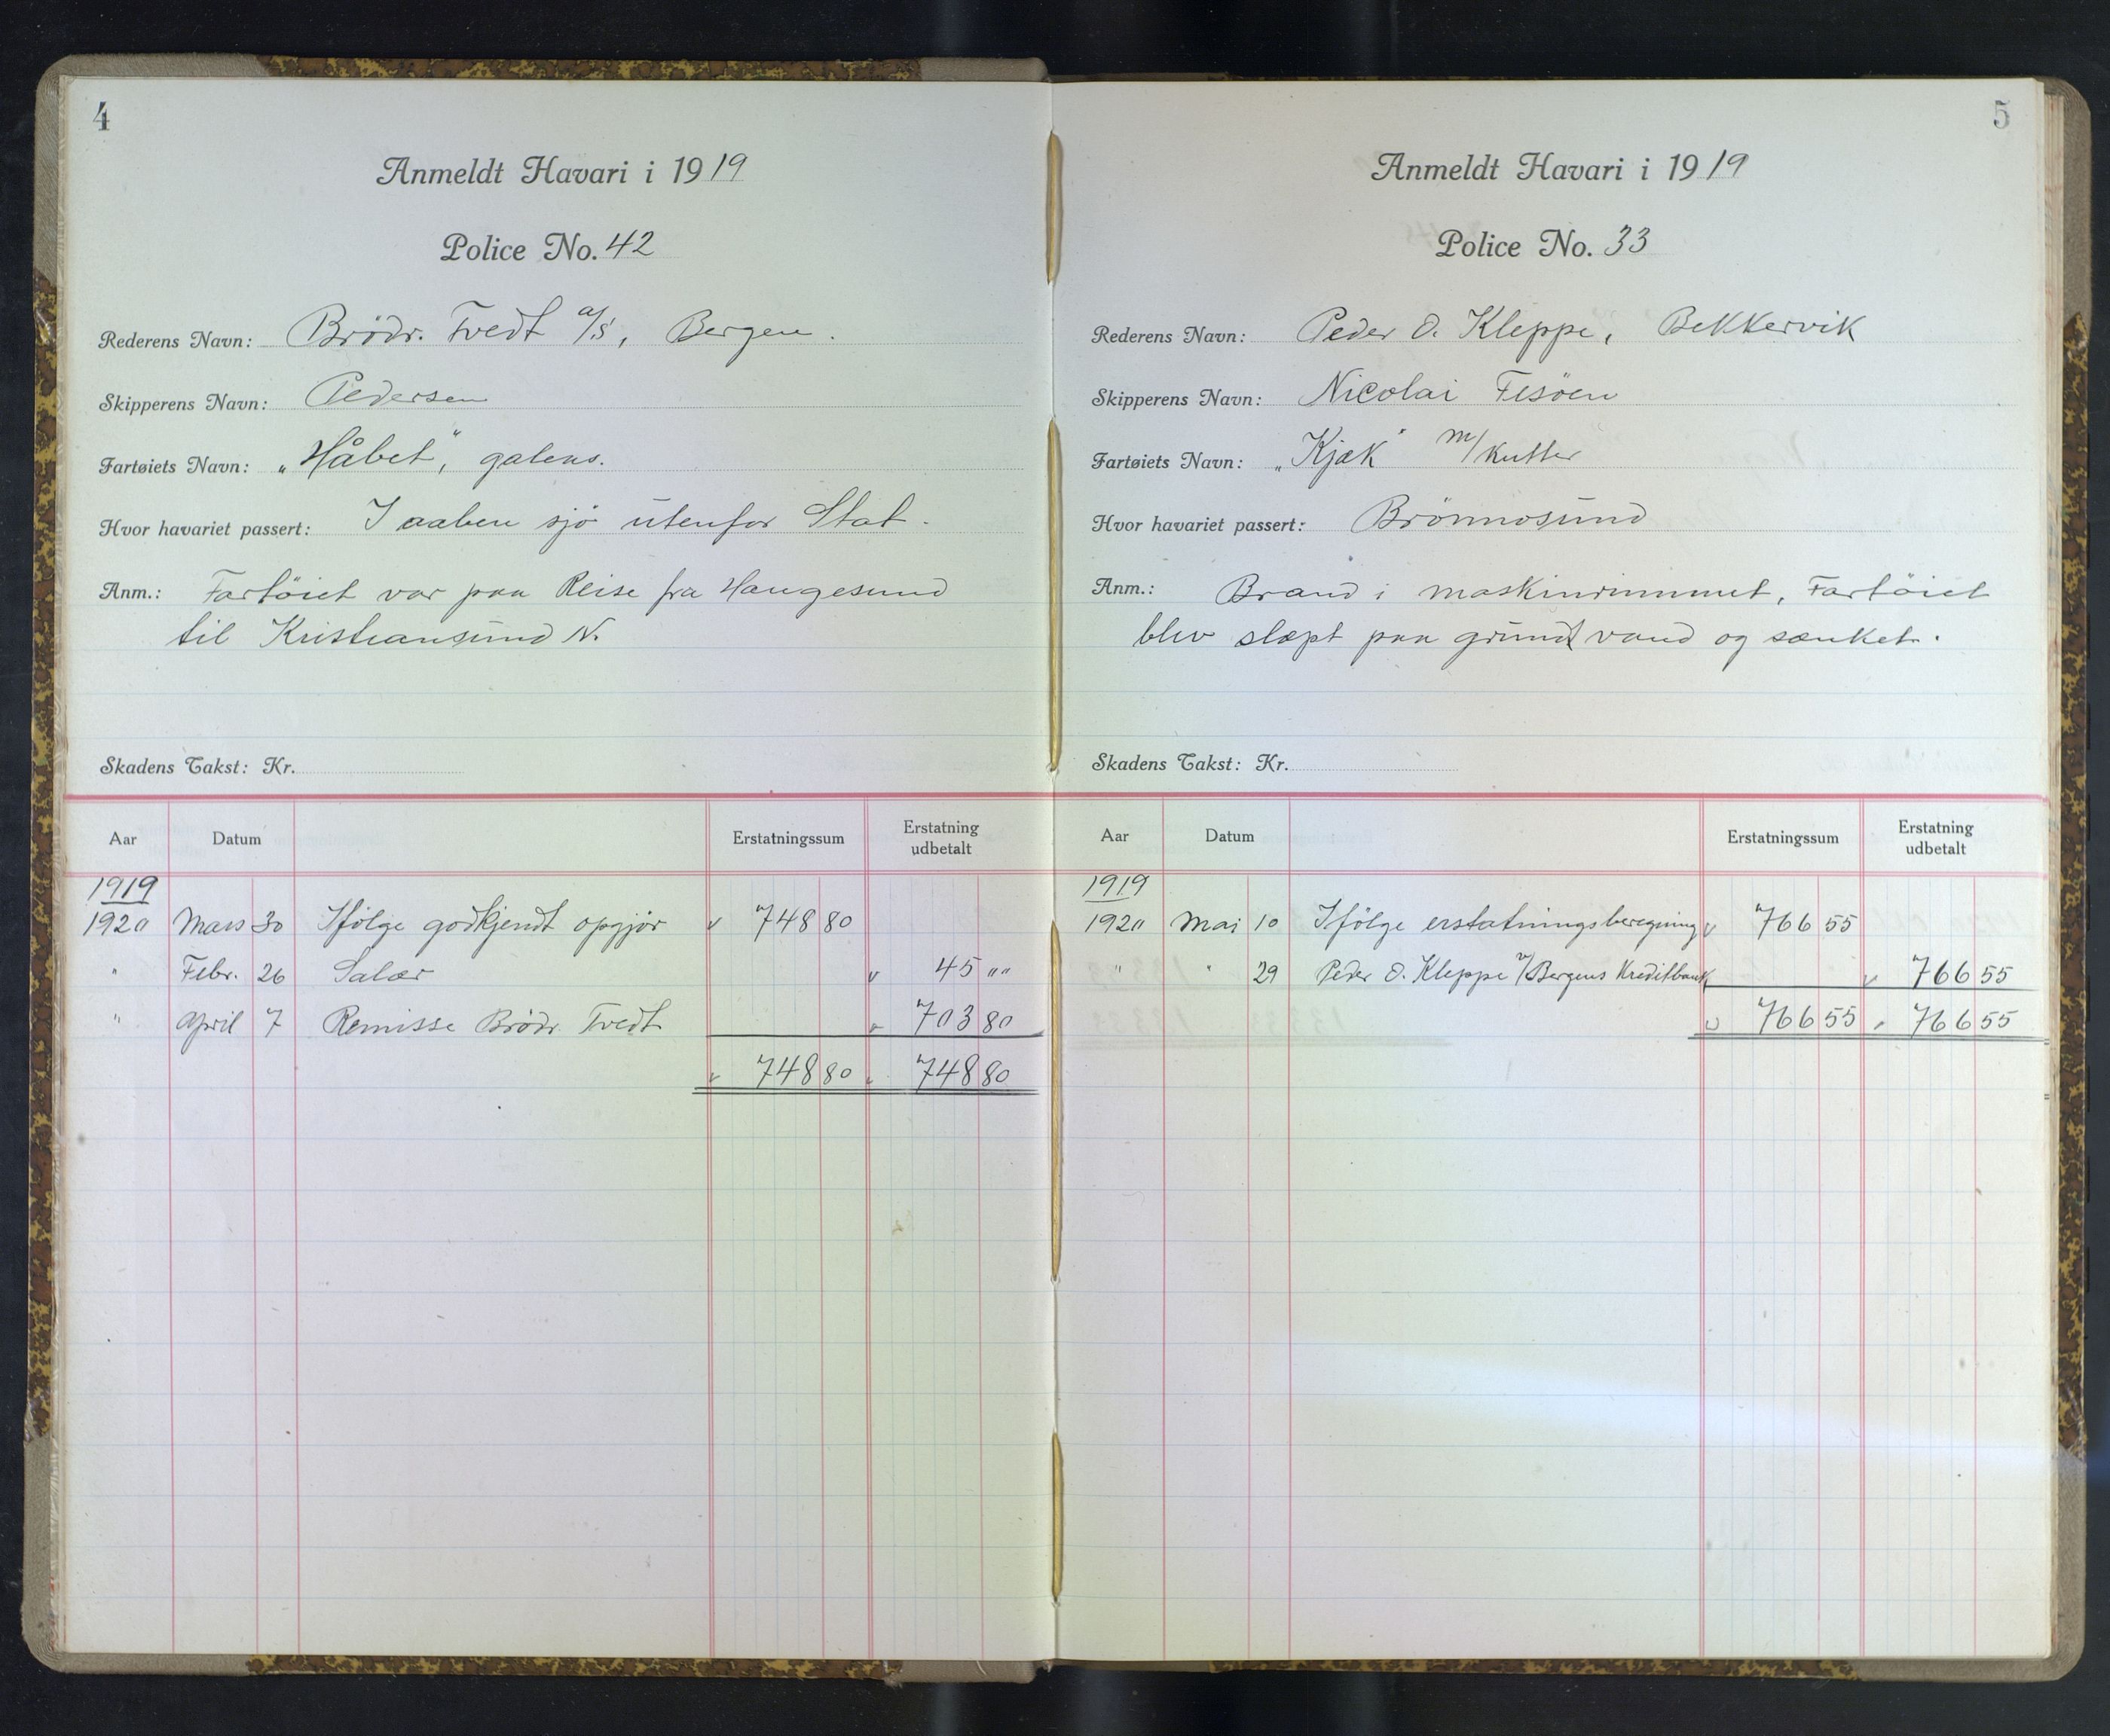 4
Anmeldt Havari i 1919
Police No. 42
Rederens Navn: Brödr. Tvedt a/s, Bergen.
Skipperens Navn: Pedersen
Fartøiets Navn: „Håbet", galeas.
Hvor havariet passert: I aaben sjö utenfor Stat.
Anm.: Fartöiet var paa Reise fra Haugesund
til Kristiansund N.
Skadens Takst: Kr.
Aar Datum Erstatningssum Erstatning udbetalt
1919
1920 Mars 30 Ifölge godkjendt opgjör " 748 80
" Febr. 26 Salær " 45 " "
" April 7 Remisse Brödr. Tvedt " 703 80
" 748 80 " 748 80
5
Anmeldt Havari i 1919
Police No. 33
Rederens Navn: Peder O. Kleppe, Bekkervik
Skipperens Navn: Nicolai Fesöen
Fartøiets Navn: „Kjæk" m/kutter
Hvor havariet passert: Brönnosund
Anm.: Brand i maskinrummet, Fartöiet
blev slæpt paa grund vand og sænket.
Skadens Takst: Kr.
Aar Datum Erstatningssum Erstatning udbetalt
1919
1920 Mai 10 Ifölge erstatningsberegning " 766 55
" " 29 Peder O. Kleppe v/Bergens Kreditbank " 766 55
" 766 55 " 766 55